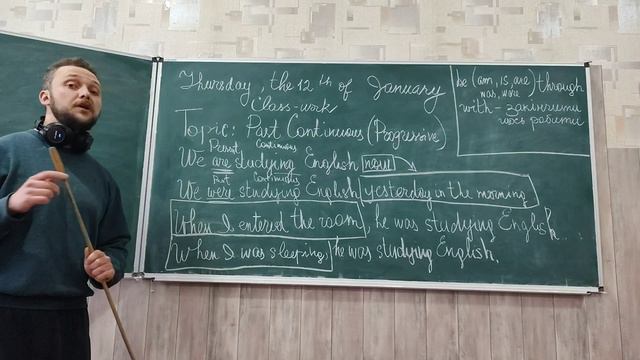 Thursday, the 12th of January
Class-work
Topic: Past Continuous (Progressive)
Present Continuous
We are studying English now
Past Continuous
We were studying English yesterday in the morning
When I entered the room, he was studying English...
When I was sleeping, he was studying English.
be (am, is, are) through
was, were
with - закінчити
щось робити